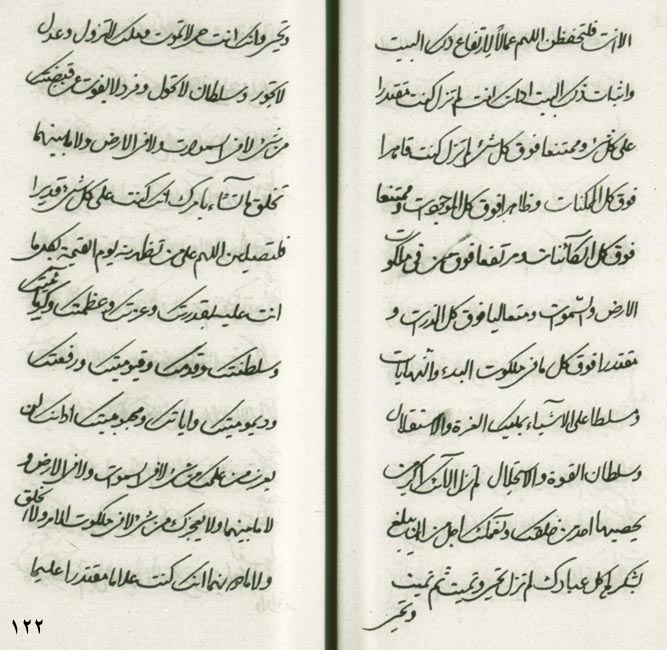 الا انت فلتحفظن اللهم عمالاً لارتفاع ذلك البيت
واثبات ذكر البيت اذ انك انت لم تزل كنت مقتدرا
على كل شئ وممتنعا فوق كل شئ لم تزل كنت قاهرا
فوق كل الممكنات وظاهرا فوق كل الموجودات وممتنعا
فوق كل الكائنات ومرتفعا فوق من في ملكوت
الارض والسموات ومتعاليا فوق كل الذرات و
مقتدرا فوق كل ما في ملكوت البدء والنهايات
ومسلطا على الاشياء بمليك العزة والاستقلال
وسلطان القوة والاجلال لم تزل الائك اكبر من
يحصيها احد من خلقك ونعمائك اجل من ان يبلغ
بشكرها كل عبادك لم تزل تحيي وتميت ثم تميت
وتحيي
وتحيي وانك انت حي لا تموت وملك لا تزول وعدل
لا تجور وسلطان لا تحول وفرد لا يفوت عن قبضتك
من شئ لا في السموات ولا في الارض ولا ما بينهما
تخلق ما تشاء بامرك انك كنت على كل شئ قديرا
فلتصلين اللهم على من تظهرنه يوم القيمة بكل ما
انت عليه بقدرتك وعزتك وعظمتك وكبريائيتك
وسلطنتك وقدمتك وقيوميتك ورفعتك
وديموميتك واياتك ومحبوبيتك اذ انك لن
يعزب من علمك من شئ لا في السموات ولا في الارض و
لا ما بينهما ولا يعجزك من شئ لا في ملكوت الامر ولا الخلق
ولا ما دونهما انك كنت علاما مقتدرا عليما
١٢٢